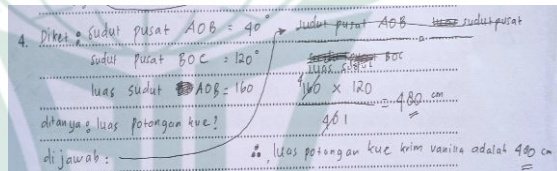 4. Diket : Sudut pusat AOB = 40°
sudut pusat BOC = 120°
luas sudut AOB = 160
ditanya : luas potongan kue?
dijawab :
sudut pusat AOB sudut pusat
BOC
luas sudut
160 x 120 = 480 cm
40 1
∴ luas potongan kue krim vanilla adalah 480 cm